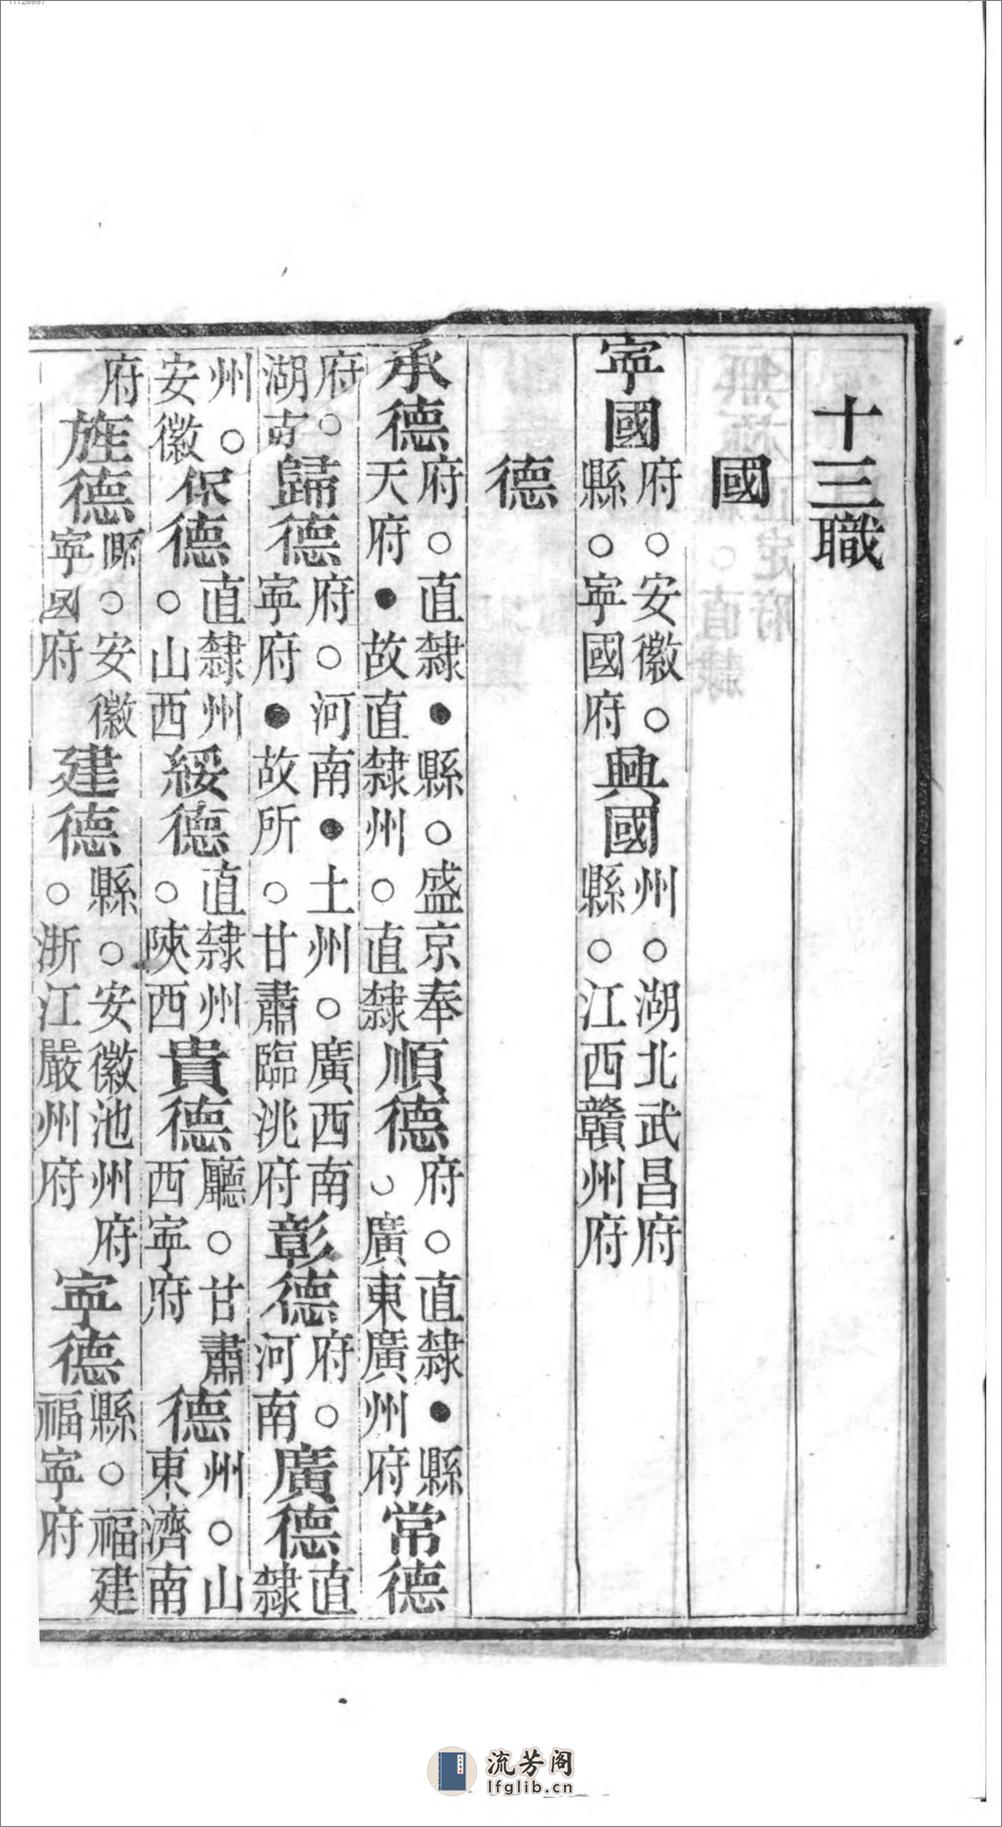 十三職
國
寧國府○安徽○縣○寧國府興國州○湖北武昌府縣○江西贛州府
德
承德府○直隸●縣○盛京奉天府●故直隸州○直隸順德府○直隸●縣○廣東廣州府常德
府○湖南歸德府○河南●土州○廣西南寧府●故所○甘肅臨洮府彰德府○河南廣德直隸
州○安徽保德直隸州○山西綏德直隸州○陝西貴德廳○甘肅西寧府德州○山東濟南
府旌德縣○安徽寧國府建德縣○安徽池州府○浙江嚴州府寧德縣○福建福寧府
流芳阁
lfglib.cn